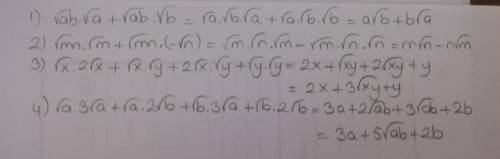 1) √ab·√a + √ab·√b = √a·√b·√a + √a·√b·√b = a√b + b√a
2) √mn·√m + √mn·(-√n) = √m·√n·√m - √m·√n·√n = m√n - n√m
3) √x·2√x + √x·√y + 2√x·√y + √y·√y = 2x + √xy + 2√xy + y
= 2x + 3√xy + y
4) √a·3√a + √a·2√b + √b·3√a + √b·2√b = 3a + 2√ab + 3√ab + 2b
= 3a + 5√ab + 2b